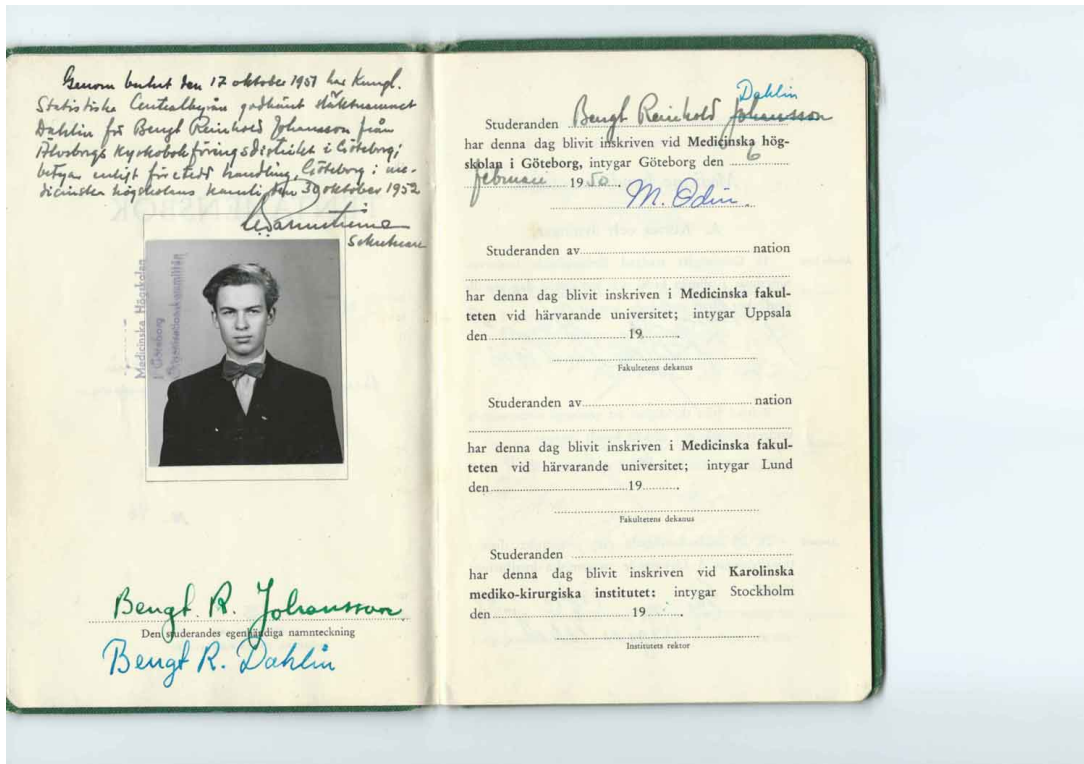 Genom beslut den 17 oktober 1951 har Kungl.
Statistiska Centralbyrån godkänt släktnamnet
Dahlin för Bengt Reinhold Johansson från
Älvsborgs Kyrkobokföringsdistrikt i Göteborg;
betygar enligt företedd handling, Göteborg i me-
dicinska högskolans kansli, den 30 oktober 1952
Sekreterare
Medicinska Högskolan
i Göteborg
Organisationskommittén
Bengt R. Johansson
Den studerandes egenhändiga namnteckning
Bengt R. Dahlin
Dahlin
Studeranden Bengt Reinhold Johansson
har denna dag blivit inskriven vid Medicinska hög-
skolan i Göteborg, intygar Göteborg den 6
februari 1950.
M. Odin.
Studeranden av nation
har denna dag blivit inskriven i Medicinska fakul-
teten vid härvarande universitet; intygar Uppsala
den 19
Fakultetens dekanus
Studeranden av nation
har denna dag blivit inskriven i Medicinska fakul-
teten vid härvarande universitet; intygar Lund
den 19
Fakultetens dekanus
Studeranden
har denna dag blivit inskriven vid Karolinska
mediko-kirurgiska institutet: intygar Stockholm
den 19
Institutets rektor